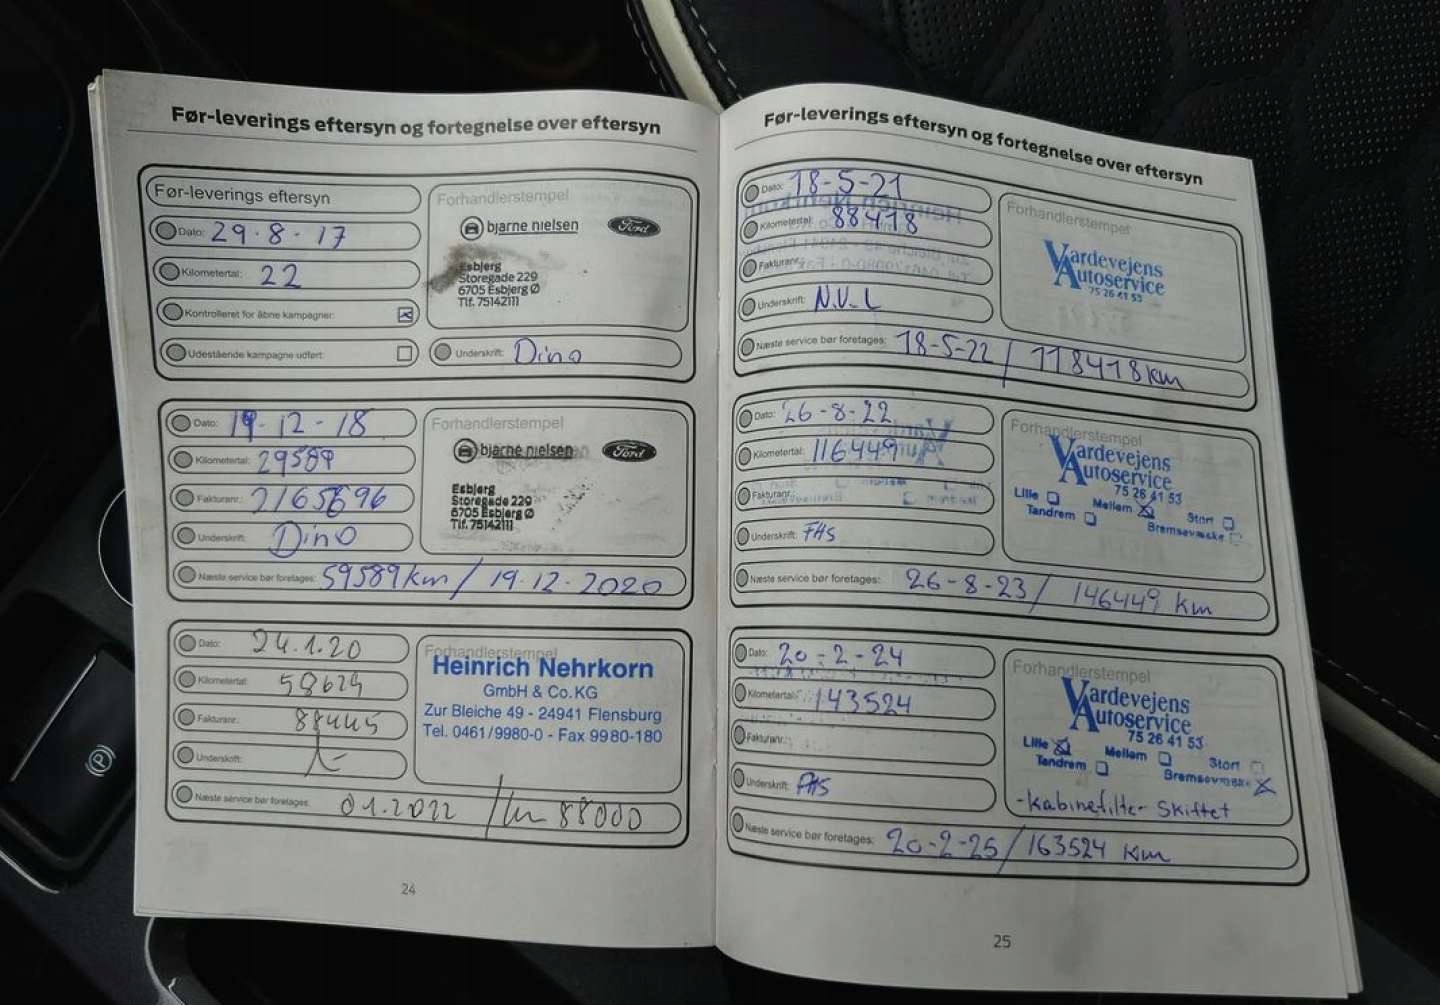 Før-leverings eftersyn og fortegnelse over eftersyn
Før-leverings eftersyn
Dato: 29-8-17
Kilometertal: 22
Kontrolleret for åbne kampagner:
Udestående kampagne udført:
Forhandlerstempel
bjarne nielsen Ford
Esbjerg
Storegade 229
6705 Esbjerg Ø
Tlf. 75142111
Underskrift: Dino
Dato: 19-12-18
Kilometertal: 29589
Fakturanr.: 2165696
Underskrift: Dino
Forhandlerstempel
bjarne nielsen Ford
Esbjerg
Storegade 229
6705 Esbjerg Ø
Tlf. 75142111
Næste service bør foretages: 59589km / 19-12-2020
Dato: 24.1.20
Kilometertal: 58629
Fakturanr.: 88445
Underskrift:
Forhandlerstempel
Heinrich Nehrkorn
GmbH & Co.KG
Zur Bleiche 49 - 24941 Flensburg
Tel. 0461/9980-0 - Fax 9980-180
Næste service bør foretages: 01.2022 / km 88000
24
Før-leverings eftersyn og fortegnelse over eftersyn
Dato: 18-5-21
Kilometertal: 88418
Fakturanr.:
Underskrift: N.V.L
Forhandlerstempel
Vardevejens
Autoservice
75 26 41 53
Næste service bør foretages: 18-5-22 / 118418km
Dato: 26-8-22
Kilometertal: 116449
Fakturanr.:
Underskrift: FHS
Forhandlerstempel
Vardevejens
Autoservice
75 26 41 53
Lille Mellem Stort
Tandrem Bremsevæske
Næste service bør foretages: 26-8-23 / 146449 km
Dato: 20-2-24
Kilometertal: 143524
Fakturanr.:
Underskrift: FHS
Forhandlerstempel
Vardevejens
Autoservice
75 26 41 53
Lille Mellem Stort
Tandrem Bremsevæske
-kabinefilter skiftet
Næste service bør foretages: 20-2-25 / 163524 km
25